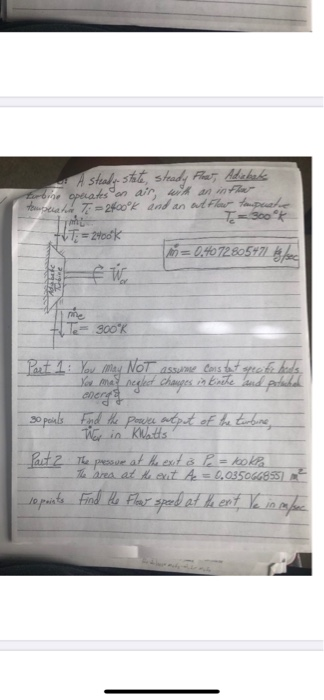 A steady state, steady Flow, Adiabatic
turbine operates on air, with an inflow
temperature Ti = 2400°K and an outflow temperature
Te = 300°K
ṁi
Ti = 2400°K
ṁ = 0.4072805471 kg/sec
Adiabatic
Turbine
Ẇcv
ṁe
Te = 300°K
Part 1: You may NOT assume constant specific heats.
You may neglect changes in kinetic and potential
energy
30 points Find the power output of the turbine,
Ẇcv in KWatts
Part 2 The pressure at the exit is Pe = 100 kPa
The area at the exit Ae = 0.0350668551 m²
10 points Find the Flow speed at the exit Ve in m/sec